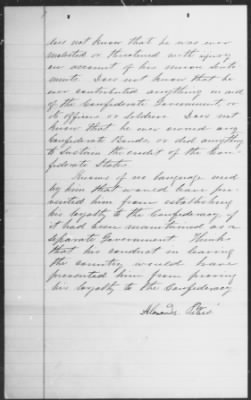 does not know that he was ever
molested or threatened with injury
on account of his union senti
ments. Does not know that he
ever contributed anything in aid
of the Confederate Government, or
its officers or soldiers. Does not
know that he ever owned any
Confederate Bonds, or did anything
to sustain the credit of the Con-
federate States.
Knows of no language used
by him that would have pre-
vented him from establishing
his loyalty to the Confederacy, if
it had been maintained as a
separate Government. Thinks
that his conduct in leaving
the country would have
prevented him from proving
his loyalty to the Confederacy
Alexander